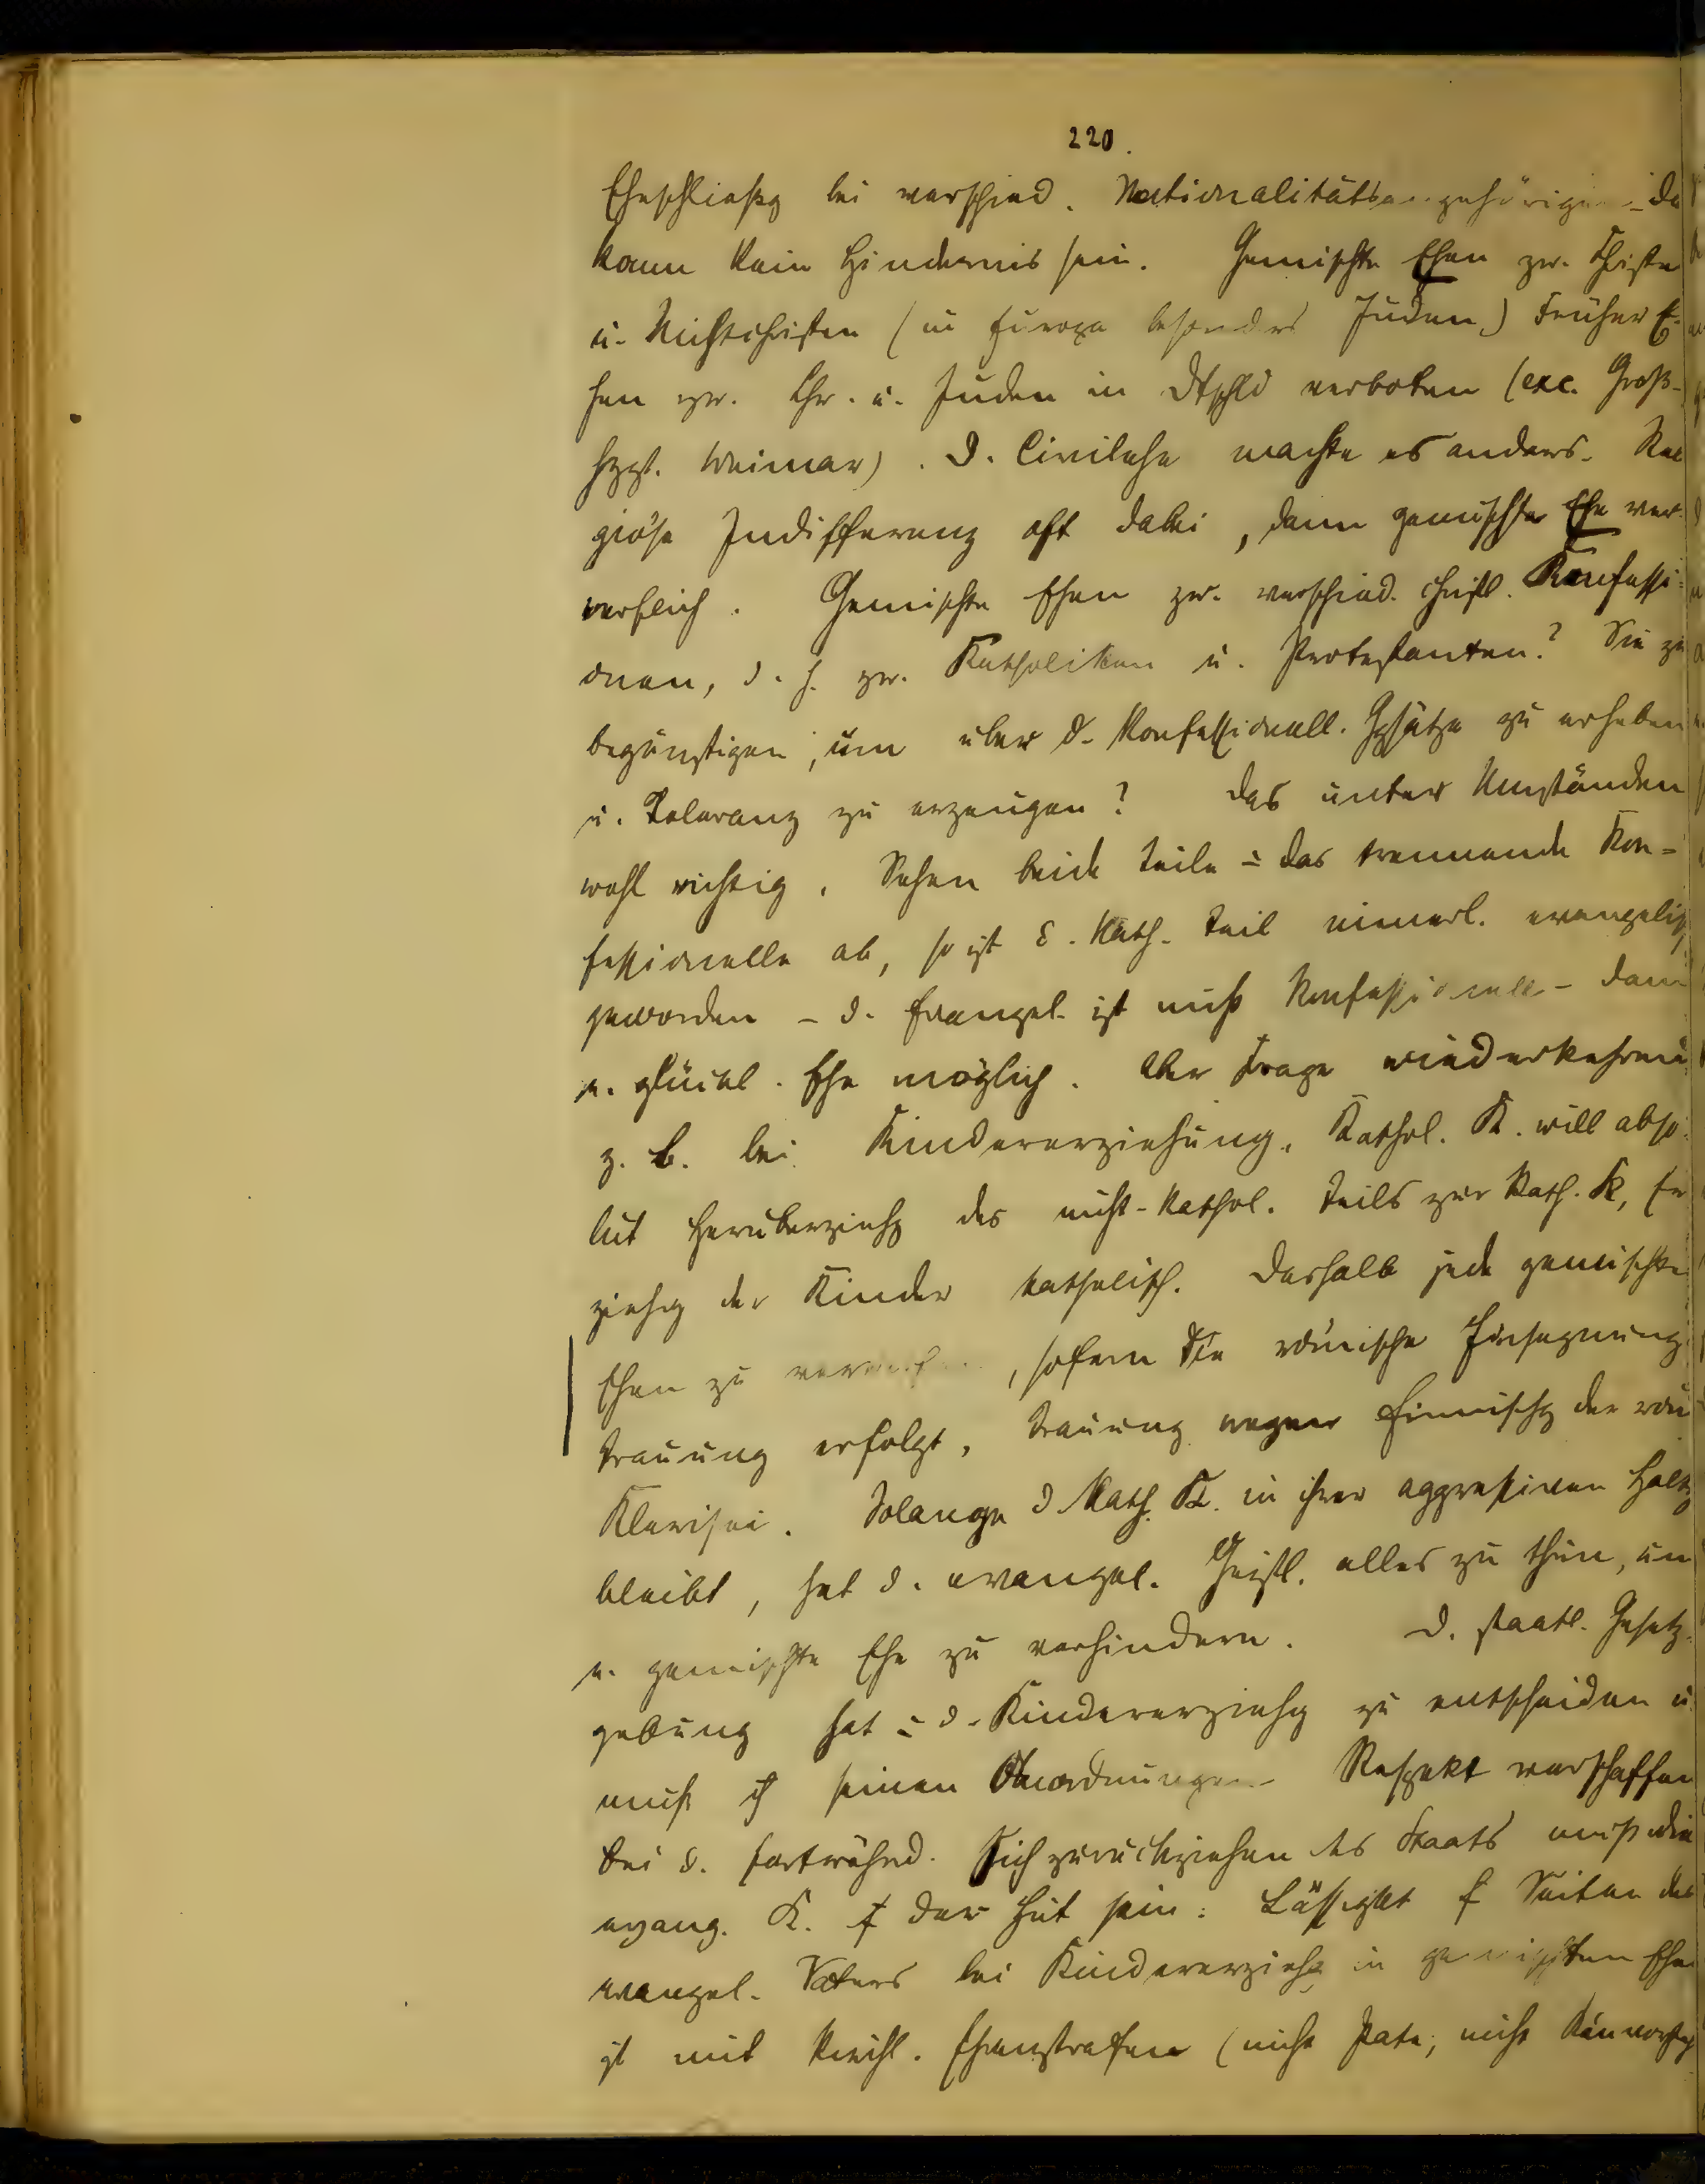 220.
Eheschließg bei verschied. Nationalitätsangehörigen - da
kann kein Hindernis sein. Gemischte Ehen zw. Christen
u. Nichtchristen (in Europa besonders Juden.) Früher E-
hen zw. Chr. u. Juden in Dtschld verboten (exc. Groß-
hzgt. Weimar). D. Civilehe machte es anders. Reli
giöse Indifferenz oft dabei, dann gemischte Ehe ver-
werflich. Gemischte Ehen zw. verschied. christl. Konfessi-
onen, d. h. zw. Katholiken u. Protestanten? Sie zu
begünstigen, um über d. konfessionell. Ggsätze zu erheben
u. Toleranz zu erzeugen? Das unter Umständen
wohl richtig. Sehen beide Teile das trennende Kon-
fessionelle ab, so ist d. kath. Teil innerl. evangelisch
geworden - d. Evangel. ist nicht konfessionell - dann
e. glückl. Ehe möglich. Aber Frage wiederkehrend
z. B. bei Kindererziehung. Kathol. K. will abso-
lut Herüberziehg des nicht-kathol. Teils zur kath. K, Er
ziehg der Kinder katholisch. Deshalb jede gemischte
Ehen zu , sofern die römische Einsegnung
Trauung erfolgt, Trauung wegen Einmischg der röm
Klerisei. Solange d kath. K. in ihrer aggressiven Haltg
bleibt, hat d. evangel. Geistl. alles zu thun, um
e. gemischte Ehe zu verhindern. D. staatl. Gesetz-
gebung hat d. Kindererziehg zu entscheiden u.
muß seinen Anordnungen Respekt verschaffen
bei d. fortwährd. Sichzurückziehen des Staats muß die
evang. K. auf der Hut sein. Lässigkt Seiten des
evangel. Vaters bei Kindererziehg in gemischten Ehen
ist mit kirchl. Ehrenstrafen (nicht Pate, nicht